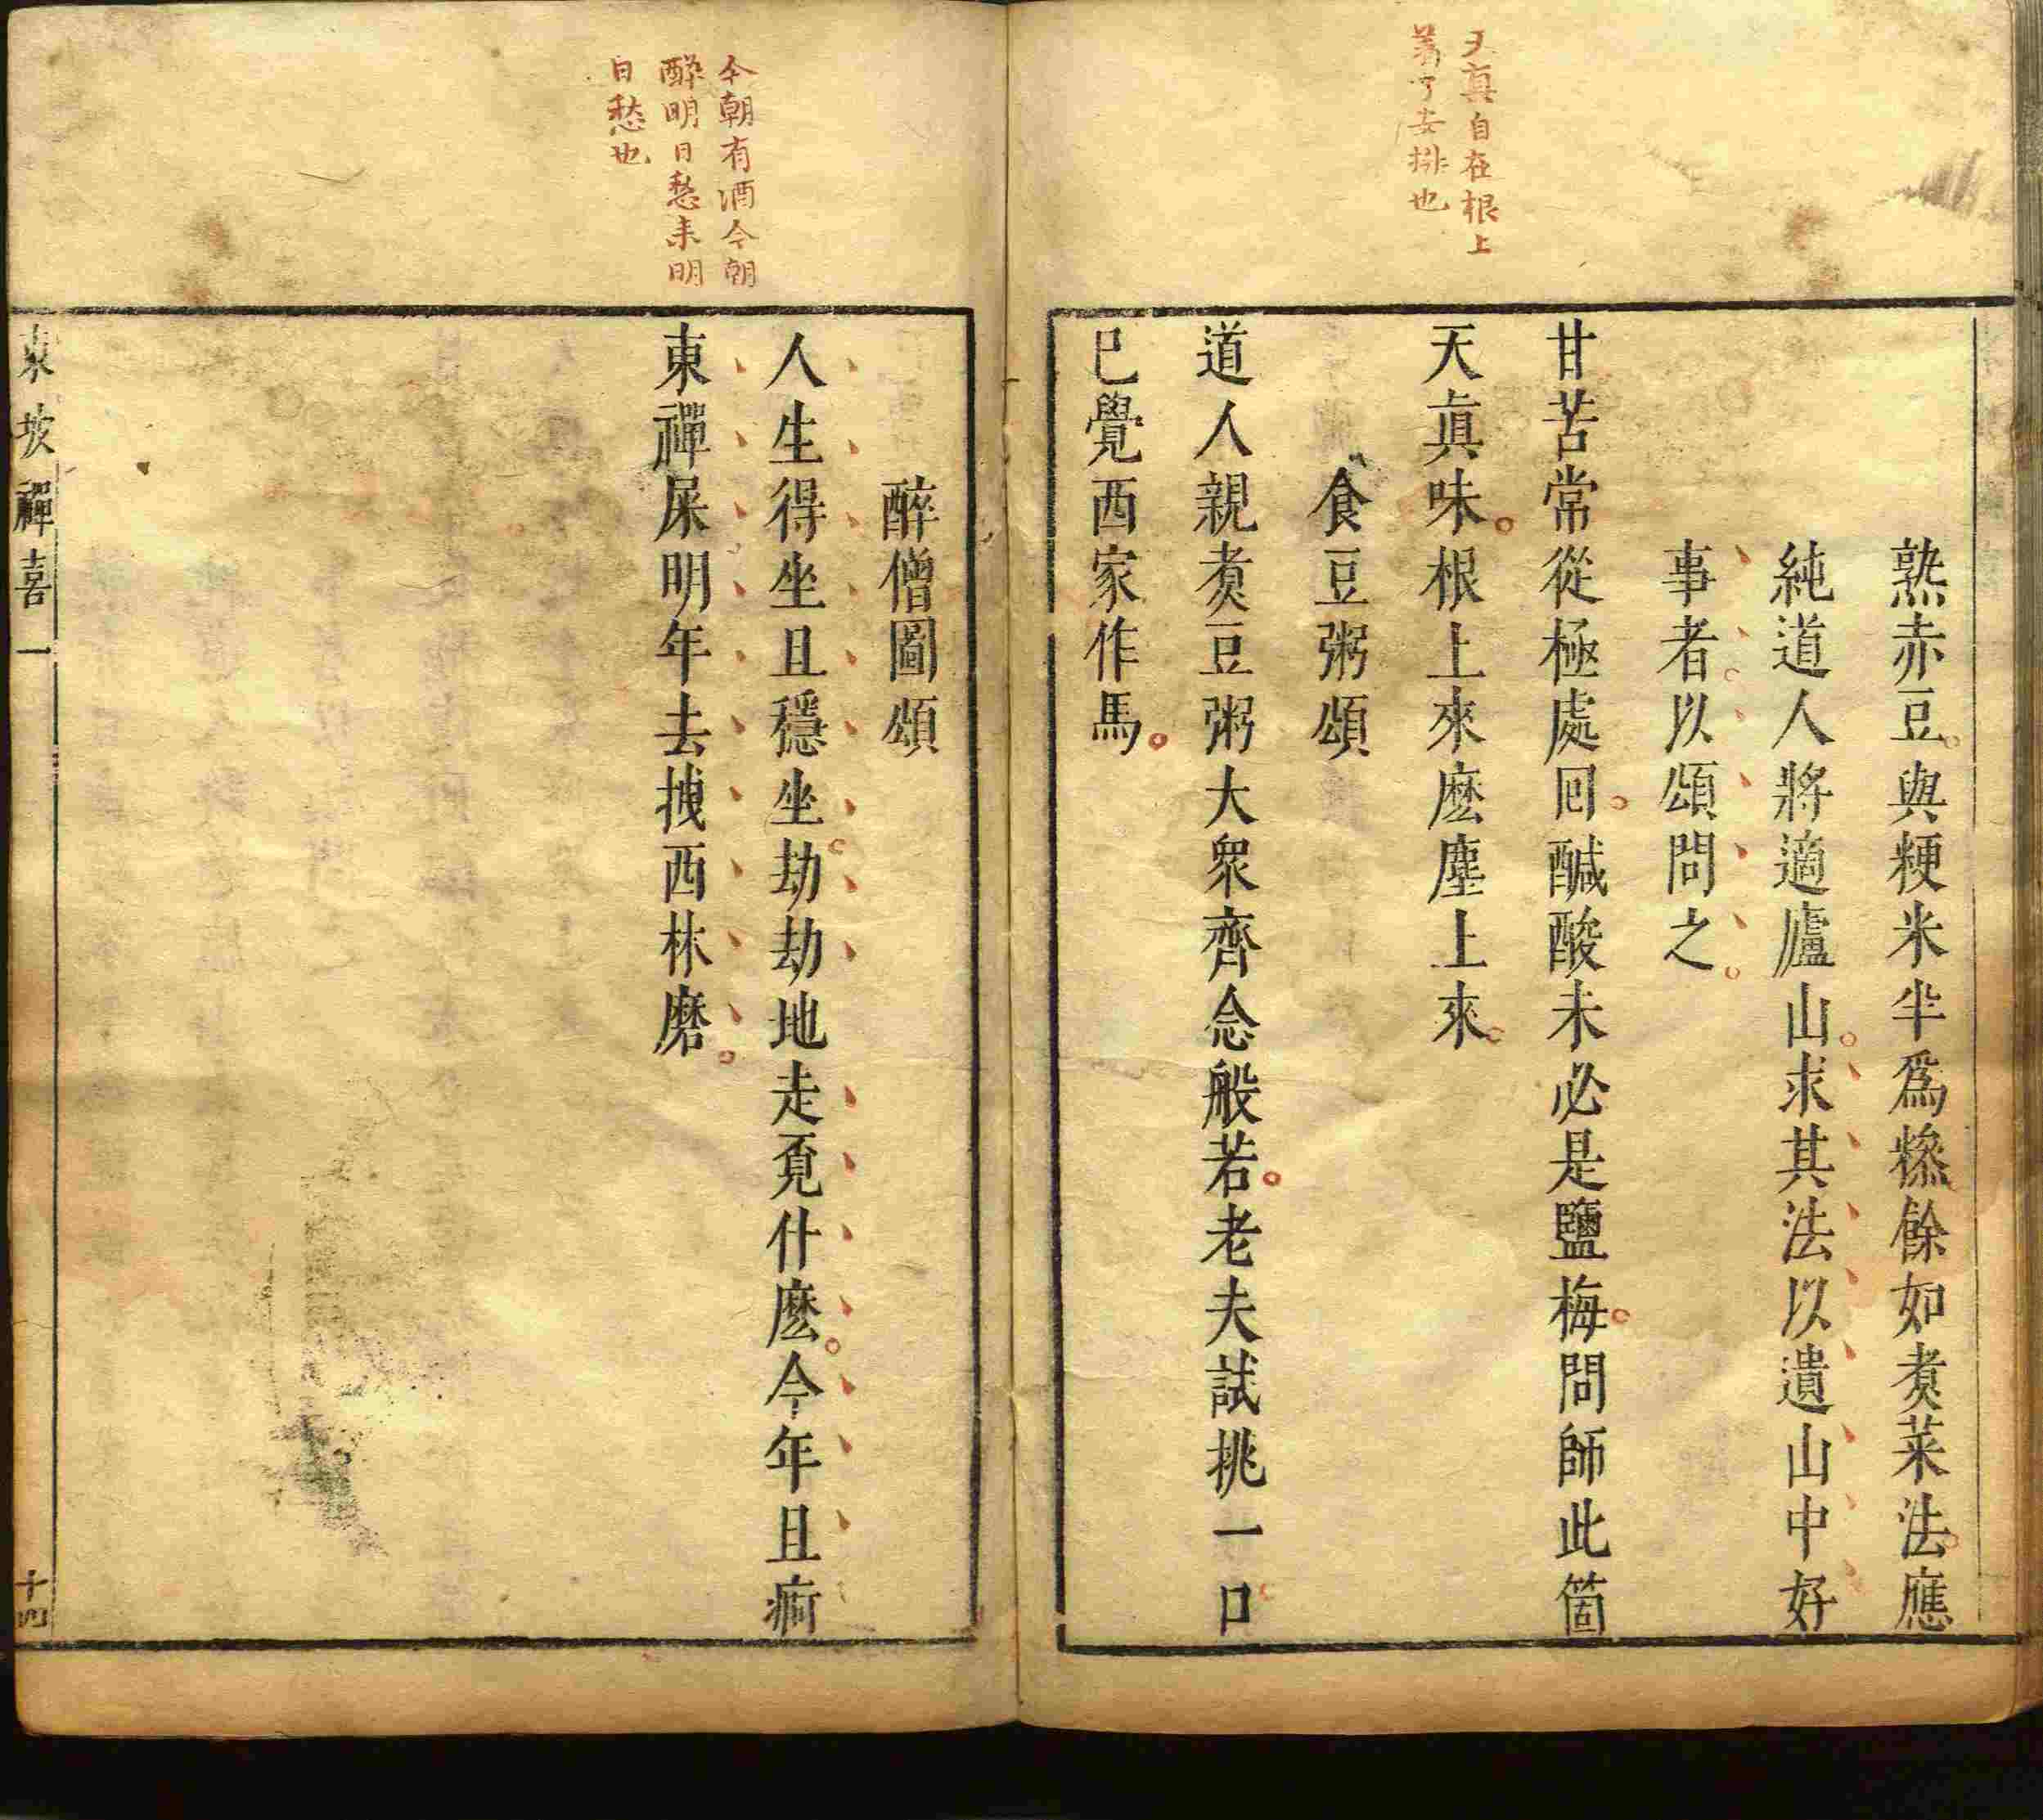 天真自在根上
著了安排也
熟赤豆與粳米半爲糝餘如煮菜法應
純道人將適廬山求其法以遺山中好
事者以頌問之
甘苦常從極處回醎酸未必是鹽梅問師此箇
天眞味根上來麽塵上來
食豆粥頌
道人親煮豆粥大衆齊念般若老夫試挑一口
已覺西家作馬
今朝有酒今朝
醉明日愁来明
日愁也
醉僧圖頌
人生得坐且穩坐劫劫地走覓什麽今年且痾
東禪屎明年去拽西林磨
東坡禪喜一
十四